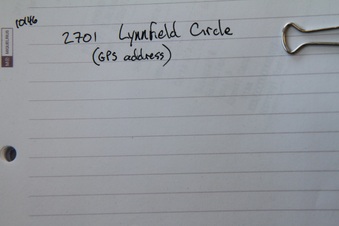 10:46
2701 Lynnfield Circle
(GPS address)